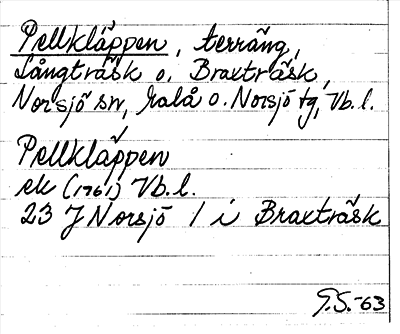 Pellkläppen, terräng,
Långträsk o. Braxträsk,
Norsjö sn, Malå o. Norsjö tg, Vb. l.
Pellkläppen
ek (1961) Vb. l.
23 J Norsjö / i Braxträsk
G.S.-63